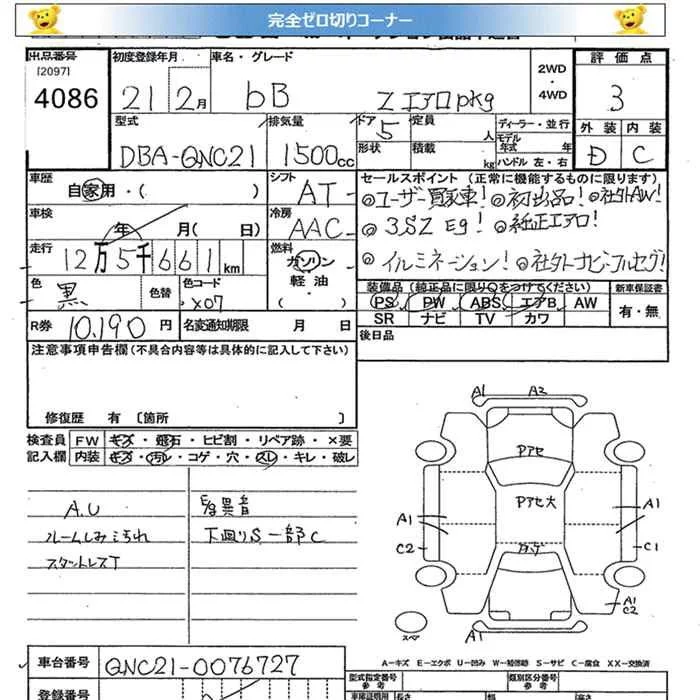 完全ゼロ切りコーナー
出品番号 初度登録年月 車名・グレード 2WD・4WD 評価点
[2097]
4086 21 2月 bB Zエアロpkg 3
型式 排気量 ドア 5 定員 人 ディーラー・並行 外装 内装
DBA-QNC21 1500cc 形状 積載 kg モデル年式 年 ハンドル 左・右 D C
車歴 自家用・( ) シフト AT セールスポイント(正常に機能するものに限ります)
◎ユーザー買取車!◎初出品!◎社外AW!
車検 年 月( 日) 冷房 AAC ◎3SZ Eg!◎純正エアロ!
走行 12万5千661km 燃料 ガソリン・軽油・( ) ◎イルミネーション!◎社外ナビ・フルセグ!
色 黒 色替 色コード X07 装備品(純正品に限り○をつけてください) 新車保証書
PS PW ABS エアB AW 有・無
R券 10,190円 名変通知期限 月 日 SR ナビ TV カワ
注意事項申告欄(不具合内容等は具体的に記入して下さい) 後日品
修復歴 有 〔箇所 〕
検査員記入欄 FW キズ・飛石・ヒビ割・リペア跡・×要
内装 キズ・汚レ・コゲ・穴・スレ・キレ・破レ
A.U
ルームしみ汚れ
スタットレスT
異音
下廻りS 一部C
A1 A2
Pアセ
Pアセ大
A1 A1
C2 C1
A1
C2
スペア A1
A-キズ E-エクボ U-凹み W-補修跡 S-サビ C-腐食 XX-交換済
車台番号 QNC21-0076727
型式指定番号 類別区分番号
参考 参考
登録番号 車庫証明用 長さ 幅 高さ